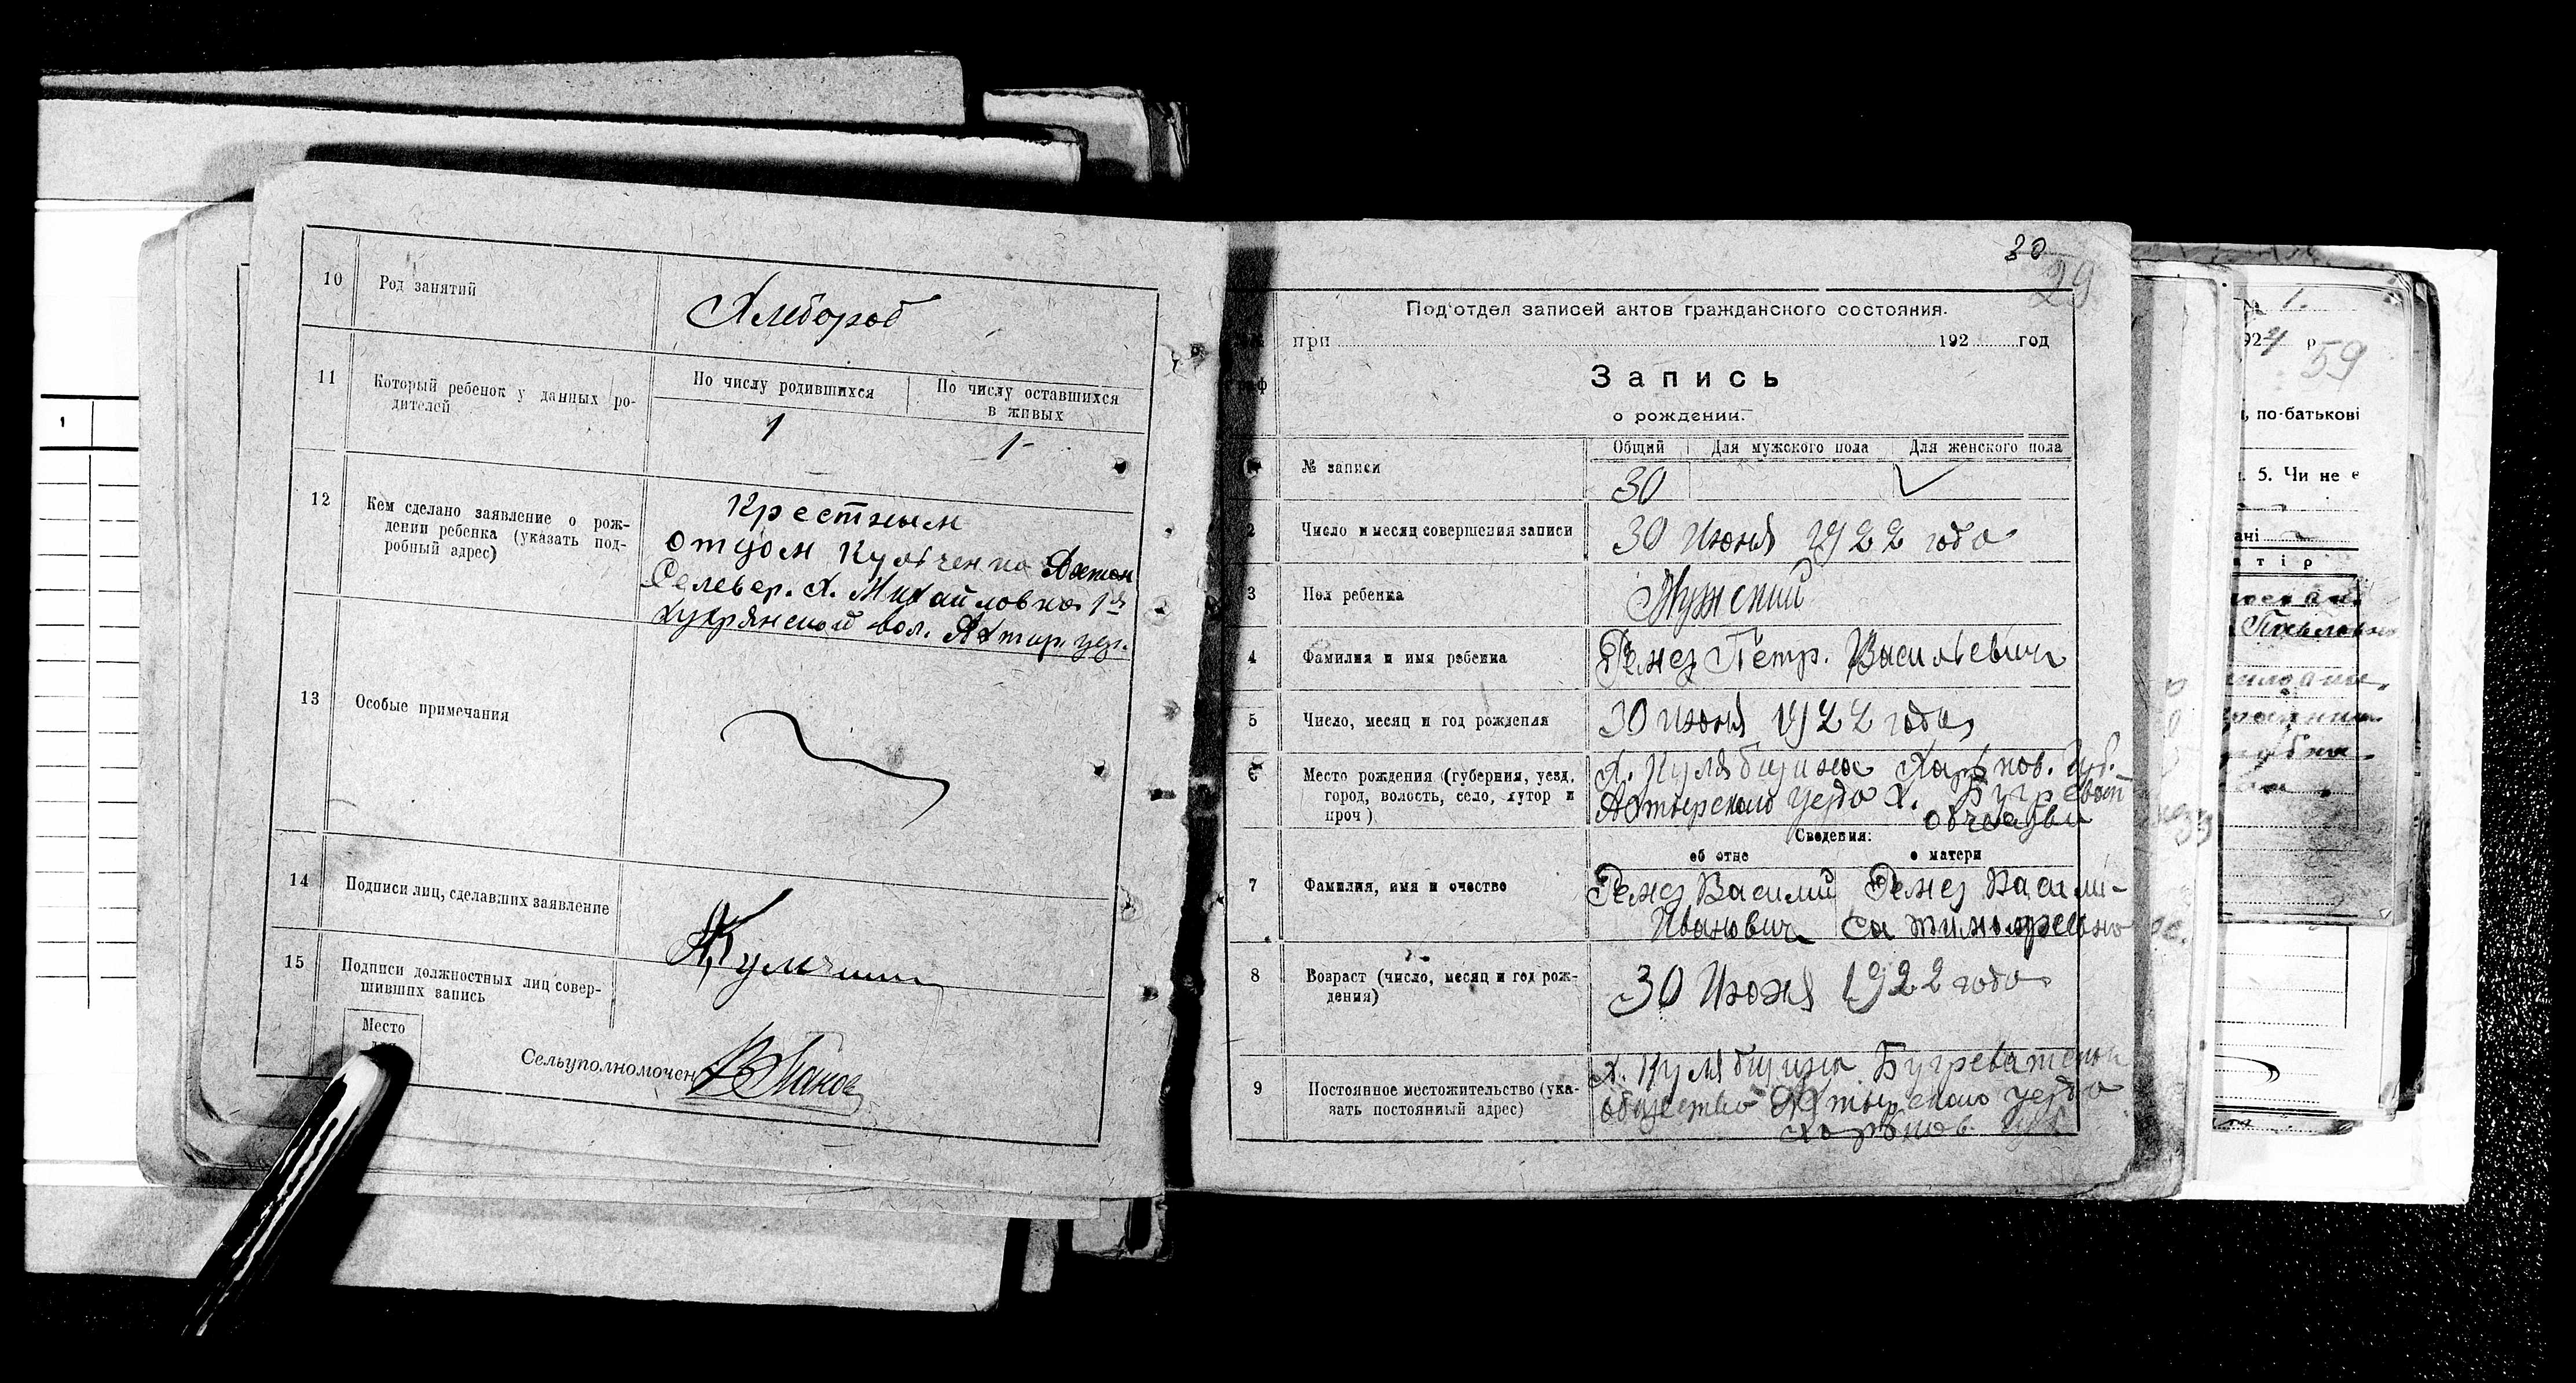 10 Род занятий
Хлебороб
11 Который ребенок у данных ро-
дителей
По числу родившихся
По числу оставшихся
в живых
1
1-
12 Кем сделано заявление о рож-
дении ребенка (указать под-
робный адрес)
Крестным
отцом Кульченко
Селевер. х. Михайловка 1й
вол. Ахтыр. уез.
13 Особые примечания
14 Подписи лиц, сделавших заявление
15 Подписи должностных лиц совер-
шивших запись
Место
Сельуполномочен
30
29
Под'отдел записей актов гражданского состояния.
при 192 год
Запись
о рождении.
1 № записи
Общий Для мужского пола Для женского пола
30
2 Число и месяц совершения записи
30 Июня 1922 года
3 Пол ребенка
Мужский
4 Фамилия и имя ребенка
Ремез Петр. Васильевич
5 Число, месяц и год рождения
30 июня 1922 года
6 Место рождения (губерния, уезд,
город, волость, село, хутор и
проч)
х. Кулябщина Харьков. Губ.
Ахтырского уезда х.
Сведения:
об отце о матери
7 Фамилия, имя и очество
Ремез Василий Ремез Васили-
Иванович са Тимофеевна
8 Возраст (число, месяц и год рож-
дения)
30 Июня 1922 года
9 Постоянное местожительство (ука-
зать постоянный адрес)
х. Кулябщина Бугреватской
общество Ахтырского уезда
Харьков. губ.
№ 1.
924 р
59
, по-батькові
. 5. Чи не є
ані
а т і р
Павловна